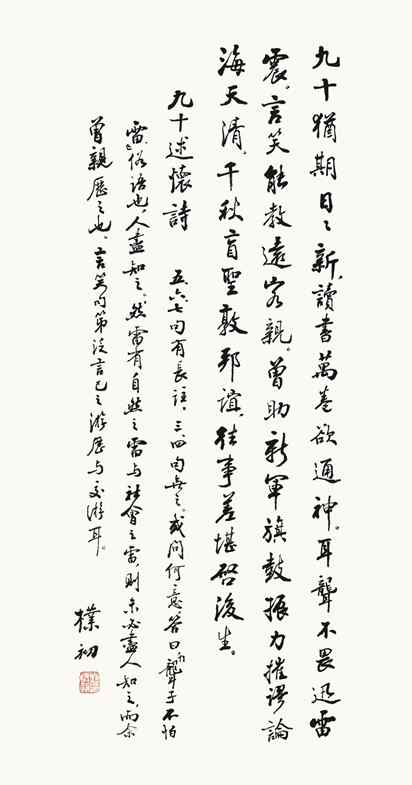 九十猶期日日新。讀書萬卷欲通神。耳聾不畏迅雷
震。言笑能教遠客親。曾助新軍旗鼓振力摧謬論
海天清。千秋盲聖敦邦誼。往事差堪啓後生。
九十述懷詩 五、六、七句有長注，三、四句無之。或問何意，答曰：聾子不怕
雷，俗語也，人盡知之。然雷有自然之雷與社會之雷，則未必盡人知之，而余
曾親歷之也。言笑句第泛言己之游歷与交游耳。
樸初